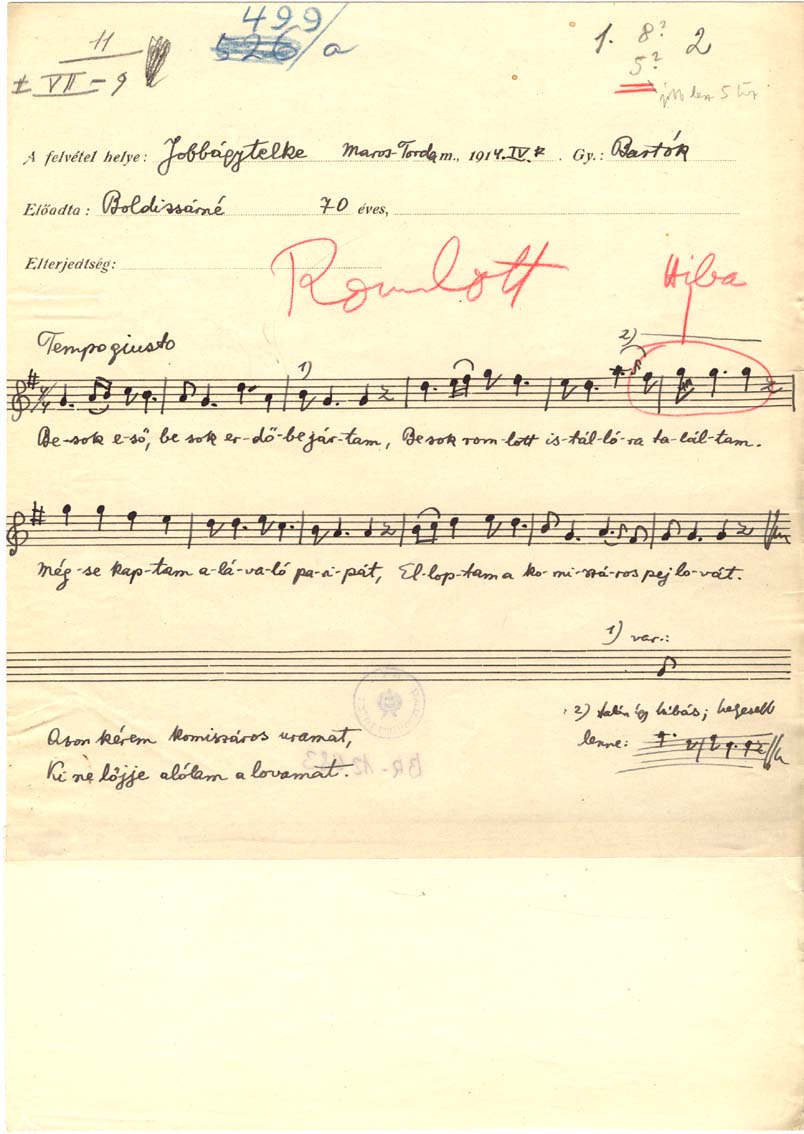 499/a
11 526
± VII - 9
1. 8? 2
5?
jobb lesz 5
A felvétel helye: Jobbágytelke Maros-Torda m., 1914. IV. Gy.: Bartók
Előadta: Boldissárné 70 éves,
Elterjedtség:
Romlott Hiba
Tempo giusto 1) 2)
Be sok e-ső, be sok er-dő-be jár-tam, Be sok rom-lott is-tál-ló-ra ta-lál-tam.
Még-se kap-tam a-lá-va-ló pa-ri-pát, El-lop-tam a ko-mi-szá-ros pej lo-vát.
1) var.:
2) talán így hibás; helyesebb
lenne:
Ason kérem komiszáros uramat,
Ki ne lőjje alólam a lovamat.
BR-12423